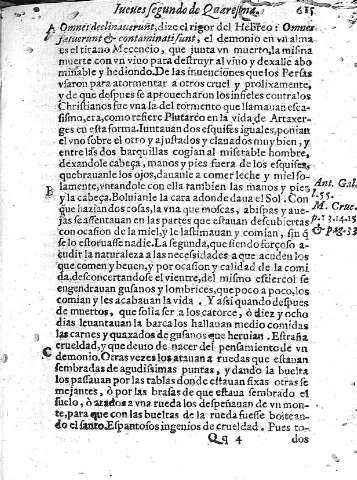 Jueves segundo de Quaresma. 615
A Omnes declinauerunt, dize el rigor del Hebreo: Omnes
fœtuerunt & contaminati sunt, el demonio en vn alma
es el tirano Mecencio, que junta vn muerto, la misma
muerte con vn viuo para destruyr al viuo y dexalle abo
minable y hediondo. De las inuenciones que los Persas
vsaron para atormentar a otros cruel y prolixamente,
y de que despues se aprouecharon los infieles contra los
Christianos fue vna la del tormento que llamauan esca-
fismo, era, como refiere Plutarco en la vida de Artaxer-
ges en esta forma. Iuntauan dos esquifes iguales, ponian
el vno sobre el otro y ajustados y clauados muy bien, y
entre las dos barquillas cogian al miserable hombre,
dexandole cabeça, manos y pies fuera de los esquifes,
quebrauanle los ojos, dauanle a comer leche y miel so-
lamente, vntandole con ella tambien las manos y pies
B y la cabeça. Boluianle la cara adonde daua el Sol. Con
que hazian dos cosas, la vna que moscas, abispas y aue-
jas se assentauan en las partes que estauan descubiertas
con ocasion de la miel, y le lastimauan y comian, sin q̃
se lo estoruasse nadie. La segunda, que siendo forçoso a-
cudir la naturaleza a las necessidades a que acuden los
que comen y beuen, y por ocasion y calidad de la comi
da, desconcertandose el vientre, del mismo estiercol se
engendrauan gusanos y lombrices, que poco a poco, los
comian y les acabauan la vida. Y assi quando despues
de muertos, que solia ser a los catorce, ò diez y ocho
dias leuantauan la barca los hallauan medio comidas
las carnes y quaxados de gusanos que heruian. Estraña
crueldad, y que deuio de nacer del pensamiento de vn
C demonio. Otras vezes los atauan a ruedas que estauan
sembradas de agudissimas puntas, y dando la buelta
los passauan por las tablas donde estauan fixas otras se
mejantes, ò por las brasas de que estaua sembrado el
suelo, ò atados a vna rueda los despeñauan de vn mon-
te, para que con las bueltas de la rueda fuesse
do el santo. Espantosos ingenios de crueldad. Pues to-
Qq 4 dos
Ant. Gal.
l. 55.
M. Crue.
p. 13. 14. 15
& pag. 33